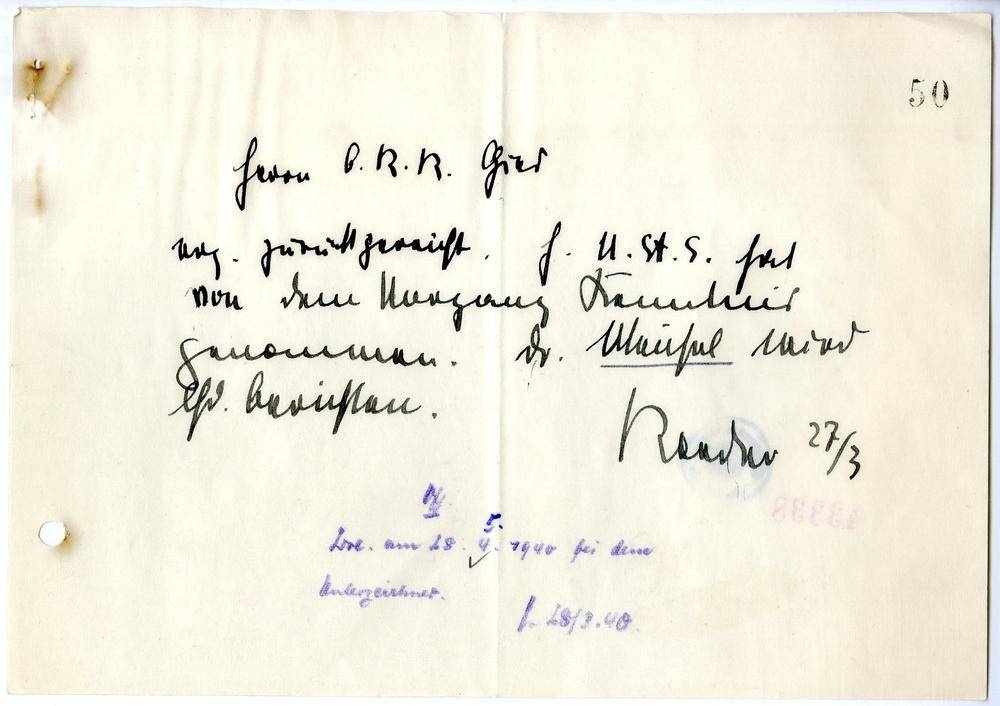 50
Herrn O.R.R.
urg. zurückgereicht. H. U.St.S. hat
von dem Vorgang Kenntnis
genommen. Dr. wird
berichten.
27/3
IV
5.
am 28. 4. 1940 bei dem
Unterzeichner.
28/3.40.
13338